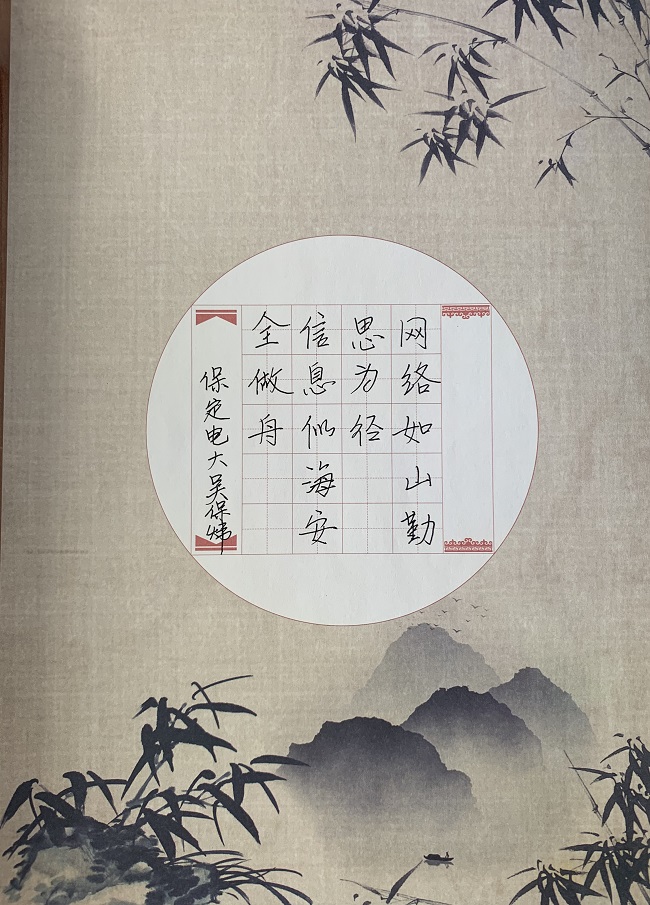 网络如山勤
思为径
信息似海安
全做舟
保定电大吴保炜